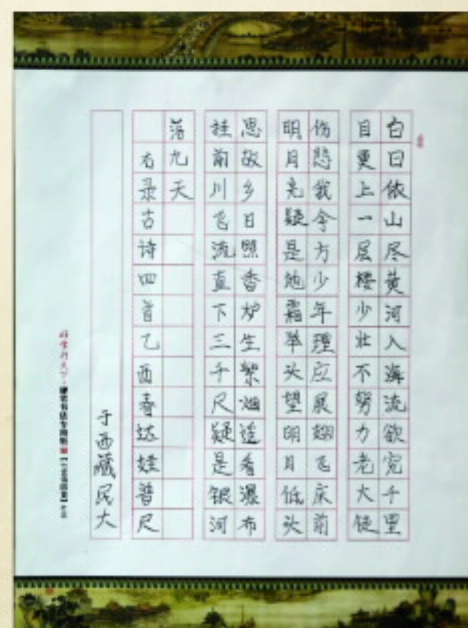 白日依山尽黄河入海流欲穷千里
目更上一层楼少壮不努力老大徒
伤悲我今方少年理应展翅飞床前
明月亮疑是地霜举头望明月低头
思故乡日照香炉生紫烟遥看瀑布
挂前川飞流直下三千尺疑是银河
落九天
右录古诗四首乙酉春达娃普尺
于西藏民大
硬笔书法专用纸